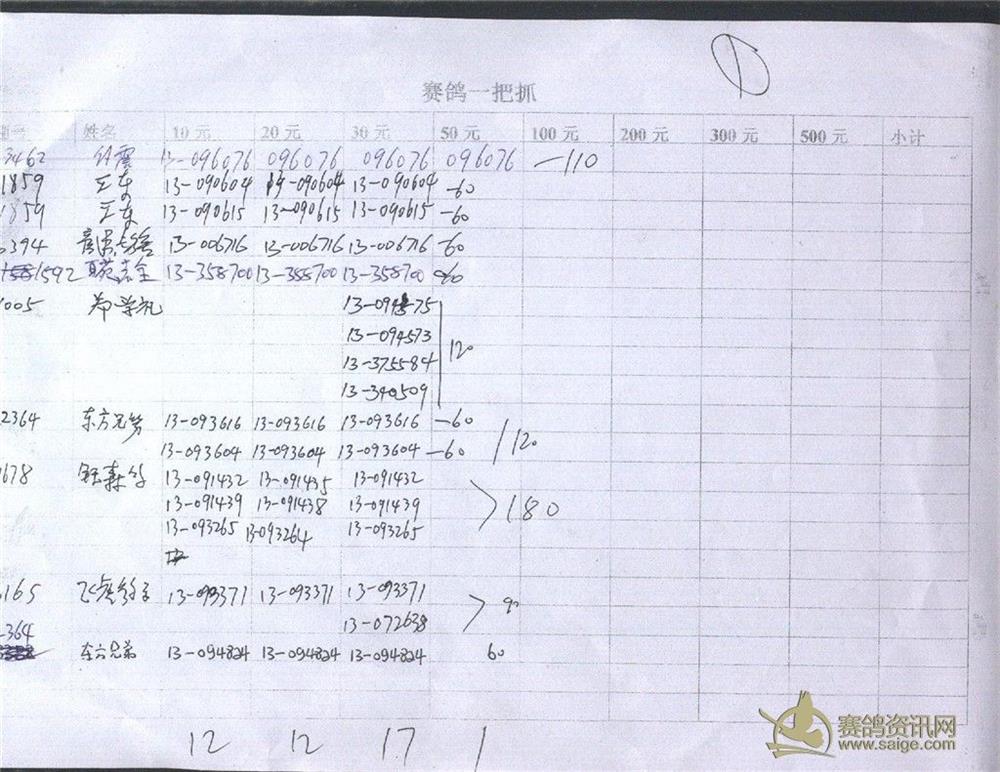 ①
赛鸽一把抓
姓名 10元 20元 30元 50元 100元 200元 300元 500元 小计
3462 13-096076 096076 096076 096076 —110
1859 王东 13-090604 14-090604 13-090604 -60
1859 王东 13-090615 13-090615 13-090615 -60
394 13-006716 13-006716 13-006716 -60
1592 13-358700 13-358700 13-358700 60
005 郑学礼 13-094575
13-094573
13-375584 120
13-340509
2364 东方兄弟 13-093616 13-093616 13-093616 —60
13-093604 13-093604 13-093604 —60 120
1678 13-091432 13-091435 13-091432
13-091439 13-091438 13-091439 180
13-093265 13-093264 13-093265
165 13-093371 13-093371 13-093371
13-072638 90
364
东方兄弟 13-094824 13-094824 13-094824 60
12 12 17 1
赛鸽资讯网
www.saige.com